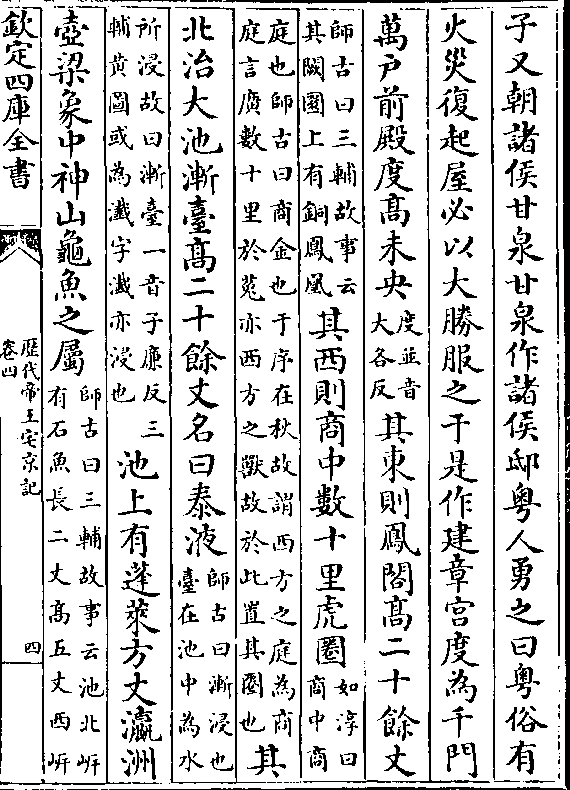 子又朝諸侯甘泉甘泉作諸侯邸粤人勇之曰粤俗有
火災復起屋必以大勝服之于是作建章宫度為千門
萬户前殿度髙未央度並音大各反其東則鳳閣髙二十餘丈
師古曰三輔故事云其闕圜上有銅鳳凰其西則商中數十里虎圈如淳曰商中商
庭也師古曰商金也于序在秋故謂西方之庭為商庭言廣數十里於菟亦西方之獸故於此置其圈也其
北治大池漸臺髙二十餘丈名曰泰液師古曰漸浸也臺在池中為水
所浸故曰漸臺一音子廉反三輔黄圖或為瀸字瀸亦浸也池上有蓬萊方丈瀛洲
壺梁象中神山龜魚之屬師古曰三輔故事云池北㟁有石魚長二丈髙五丈西㟁
欽定四庫全書
歴代帝王宅京記
卷四
四